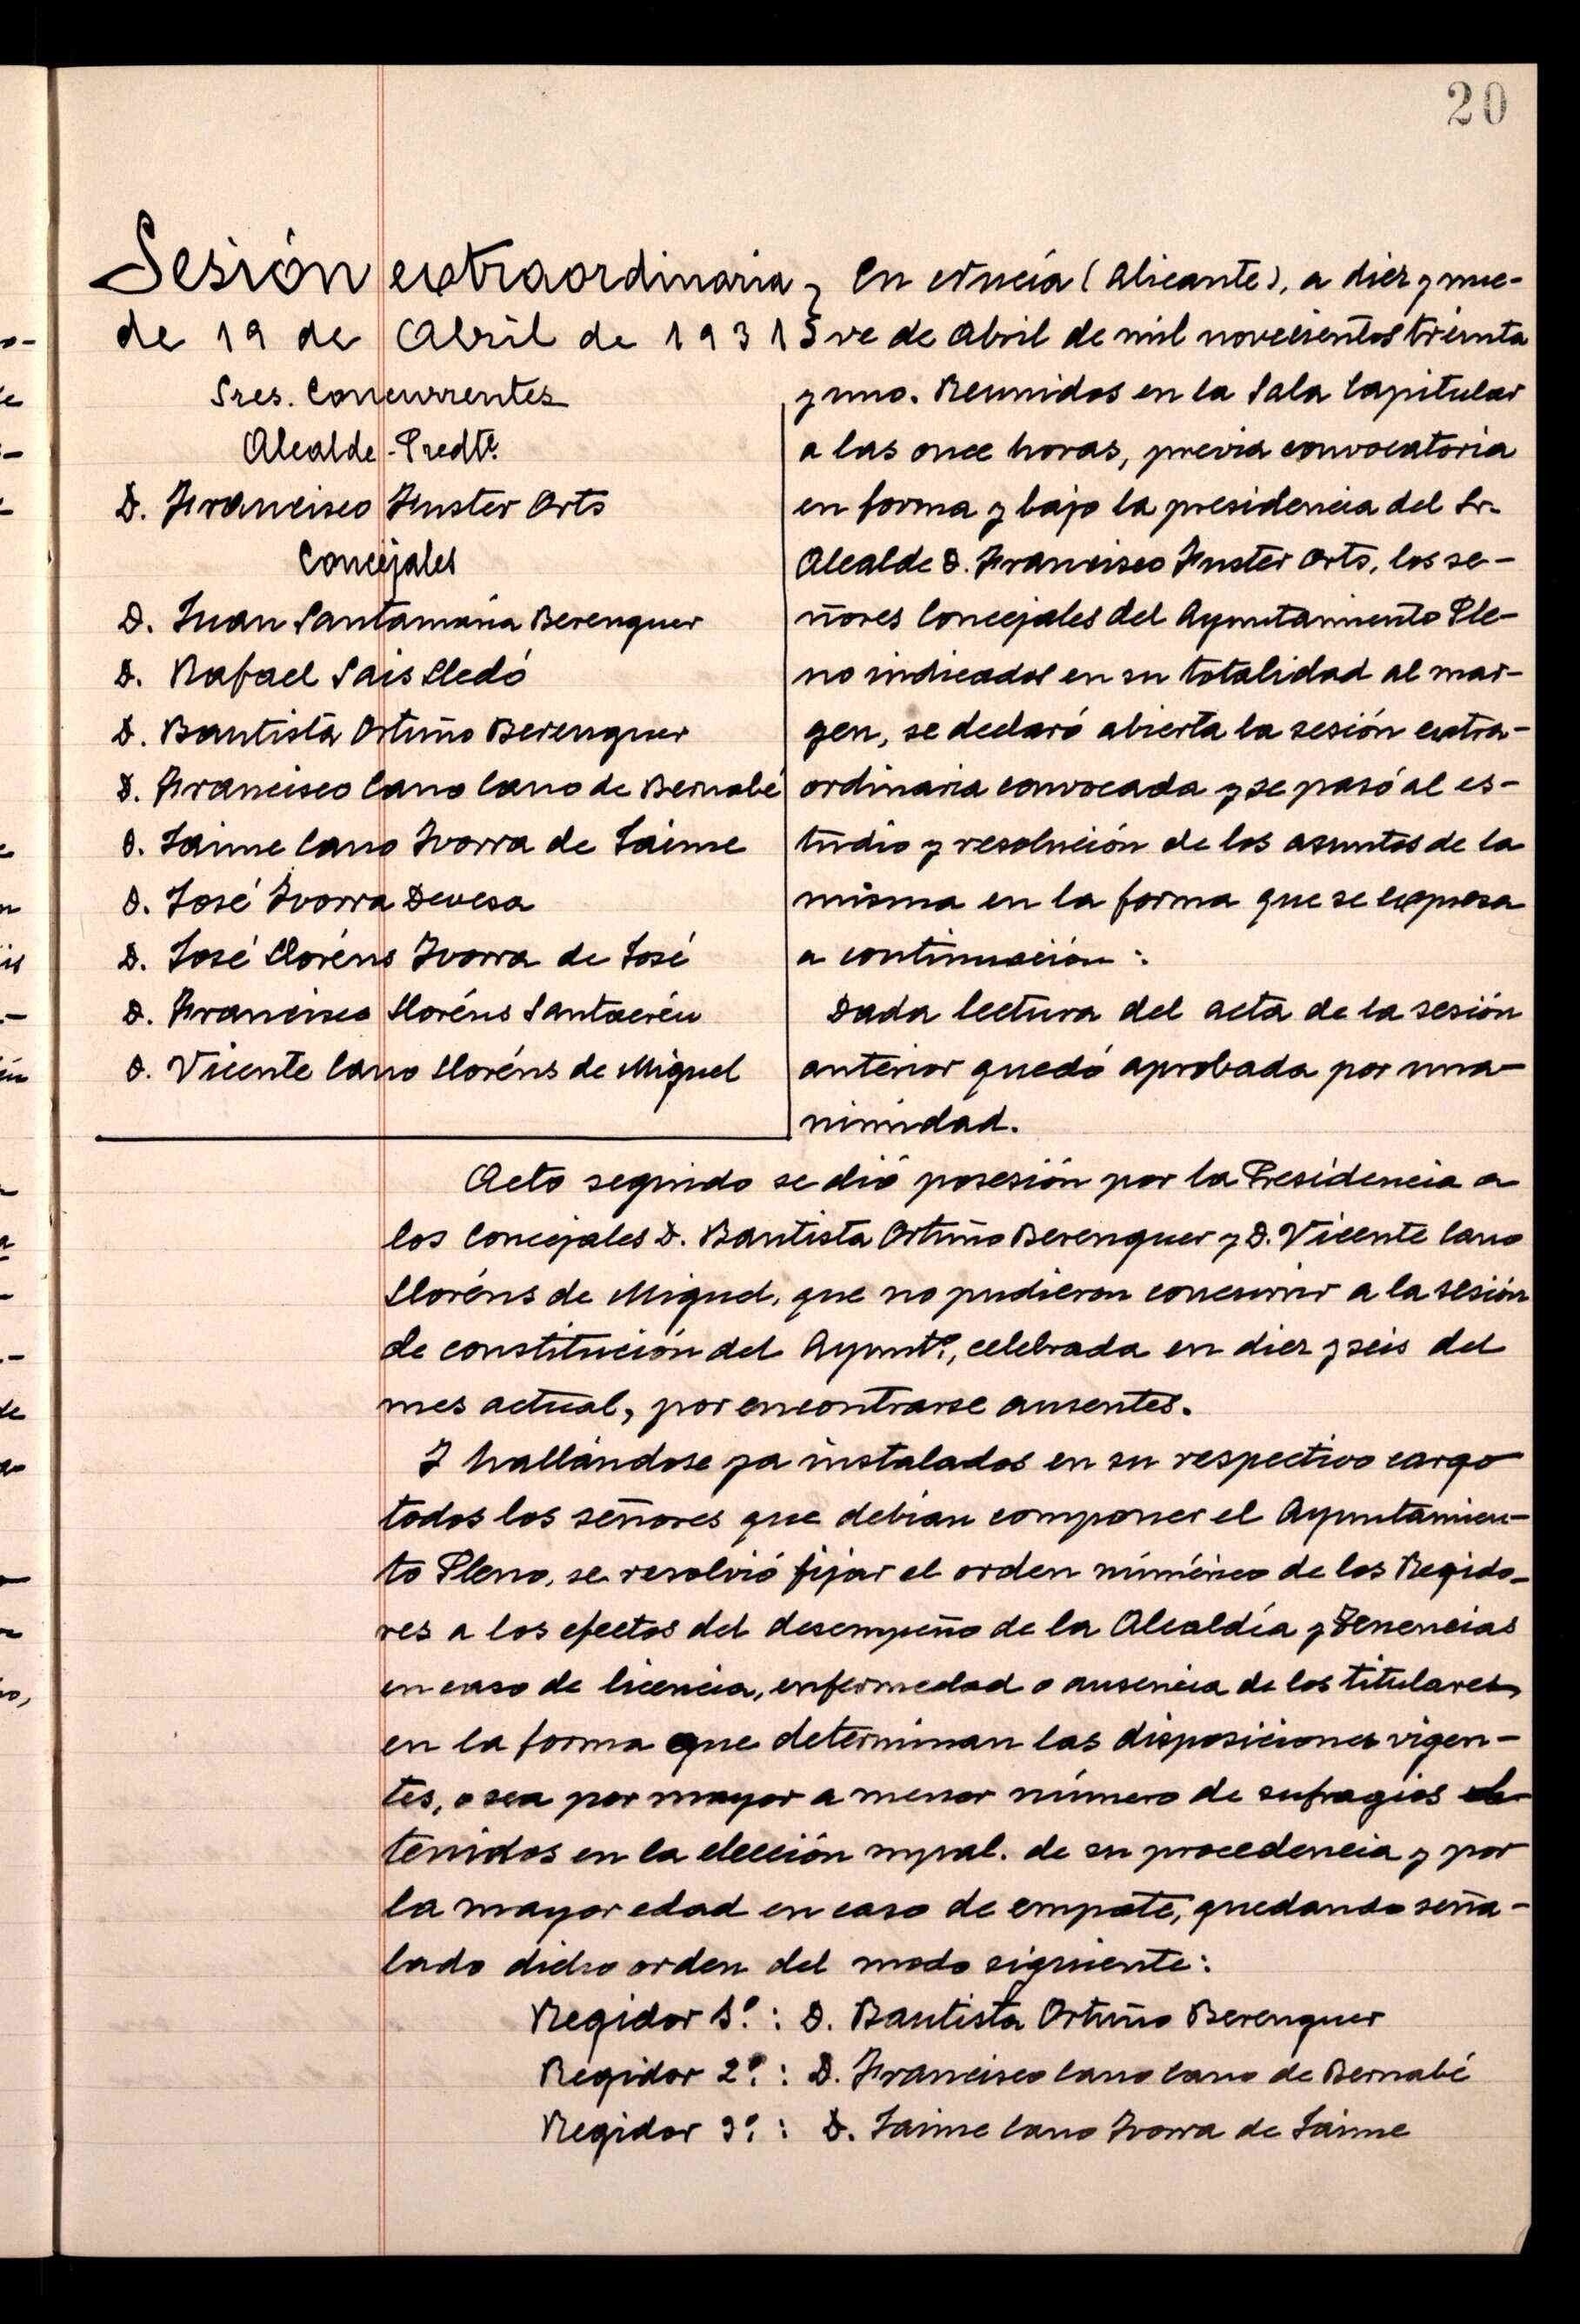 20
Sesión extraordinaria
de 19 de Abril de 1931
Sres. Concurrentes
Alcalde-Predte.
D. Francisco Fuster Orts
Concejales
D. Juan Santamaría Berenguer
D. Rafael Sais Lledó
D. Bautista Ortuño Berenguer
D. Francisco Cano Cano de Bernabé
D. Jaime Cano Ivorra de Jaime
D. José Ivorra Devesa
D. José Lloréns Ivorra de José
D. Francisco Lloréns Santacréu
D. Vicente Cano Lloréns de Miguel
En Nucía (Alicante), a diez y nue-
ve de Abril de mil novecientos treinta
y uno. Reunidos en la Sala Capitular
a las once horas, previa convocatoria
en forma y bajo la presidencia del Sr.
Alcalde D. Francisco Fuster Orts, los se-
ñores Concejales del Ayuntamiento Ple-
no indicados en su totalidad al mar-
gen, se declaró abierta la sesión extra-
ordinaria convocada y se pasó al es-
tudio y resolución de los asuntos de la
misma en la forma que se expresa
a continuación:
Dada lectura del acta de la sesión
anterior quedó aprobada por una-
nimidad.
Acto seguido se dió posesión por la Presidencia a
los Concejales D. Bautista Ortuño Berenguer y D. Vicente Cano
Lloréns de Miguel, que no pudieron concurrir a la sesión
de constitución del Ayuntº., celebrada en diez y seis del
mes actual, por encontrarse ausentes.
Y hallándose ya instalados en su respectivo cargo
todos los señores que debían componer el Ayuntamien-
to Pleno, se resolvió fijar el orden numérico de los Regido-
res a los efectos del desempeño de la Alcaldía y Tenencias
en caso de licencia, enfermedad o ausencia de los titulares,
en la forma que determinan las disposiciones vigen-
tes, o sea por mayor a menor número de sufragios ob-
tenidos en la elección mpal. de su procedencia y por
la mayor edad en caso de empate, quedando seña-
lado dicho orden del modo siguiente:
Regidor 1º.: D. Bautista Ortuño Berenguer
Regidor 2º.: D. Francisco Cano Cano de Bernabé
Regidor 3º.: D. Jaime Cano Ivorra de Jaime